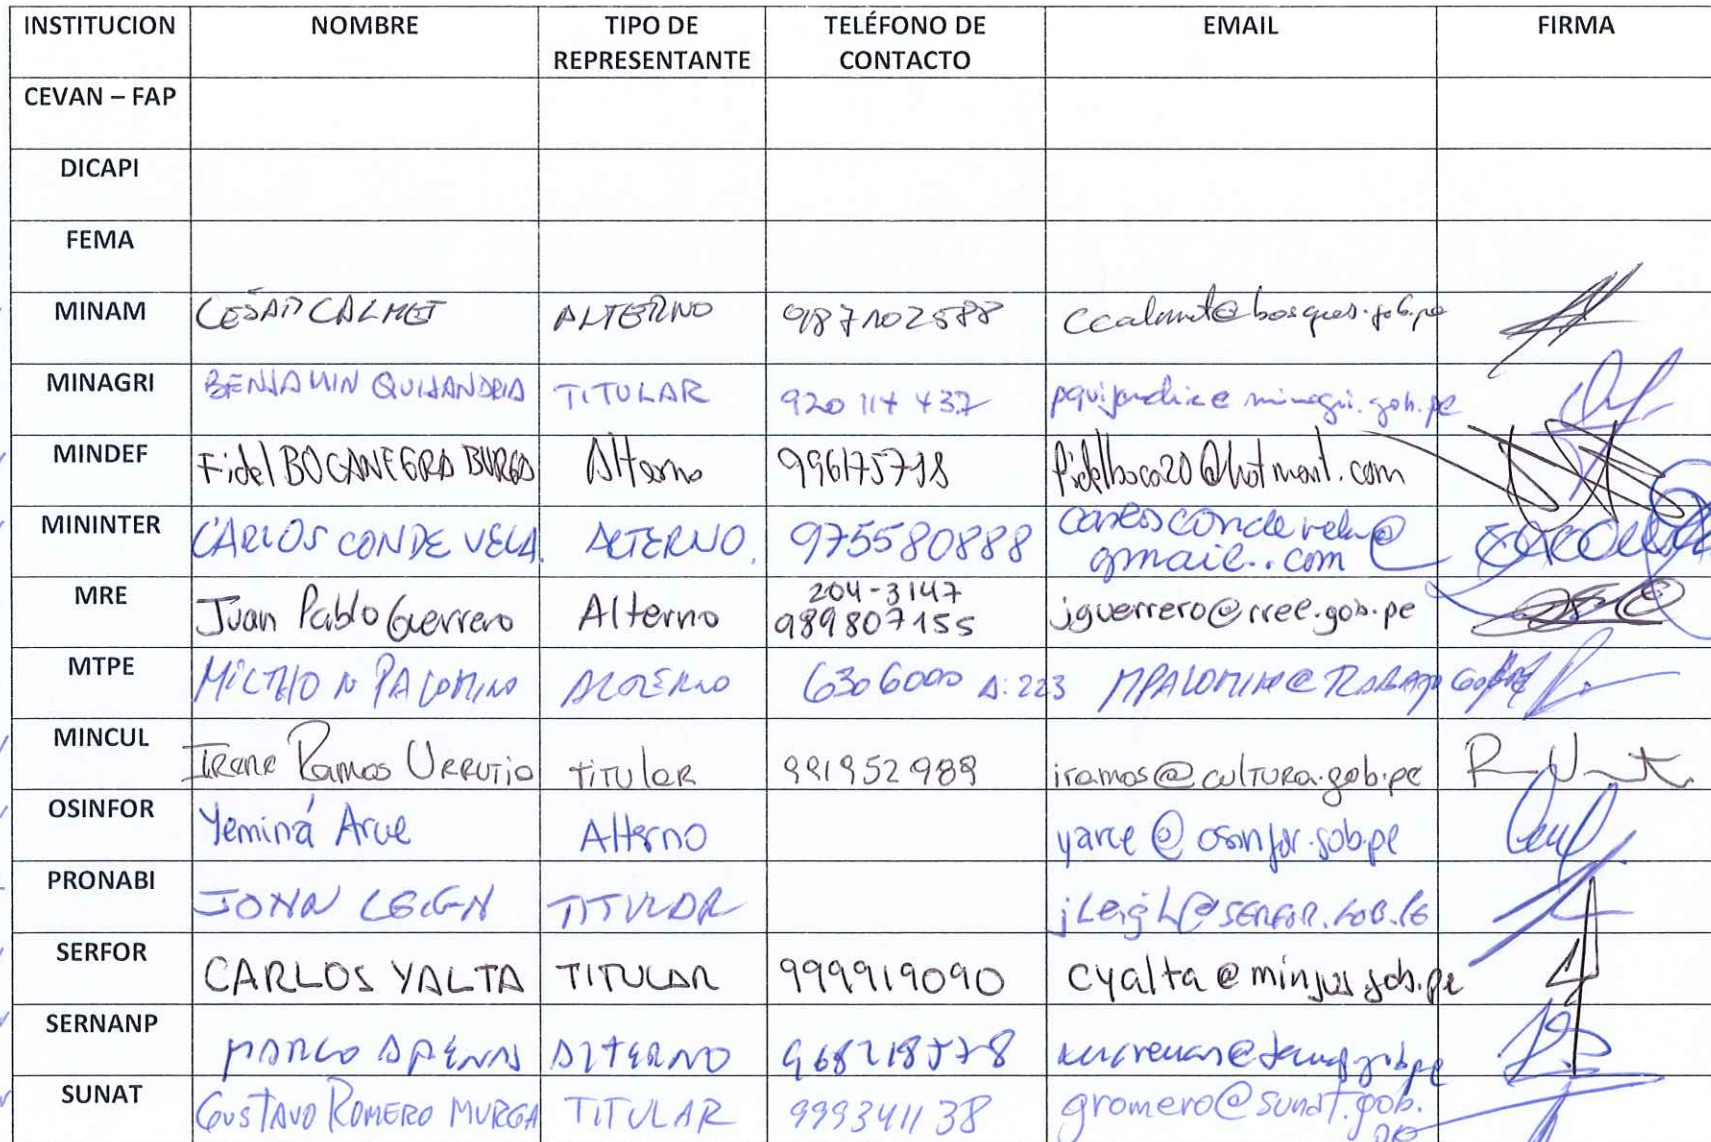 INSTITUCION NOMBRE TIPO DE REPRESENTANTE TELÉFONO DE CONTACTO EMAIL FIRMA
CEVAN – FAP
DICAPI
FEMA
MINAM CESAR CALMET ALTERNO 987102588 ccalmet@bosques.gob.pe
MINAGRI BENJAMIN QUIJANDRIA TITULAR 920 114 437 pquijandria@minagri.gob.pe
MINDEF Fidel BOCANEGRA BURGOS Alterno 996175738 fidelboca20@hotmail.com
MININTER CARLOS CONDE VELA. ALTERNO. 975580888 carloscondevela@
gmail..com
MRE Juan Pablo Guerrero Alterno 204-3147
989807155 jguerrero@rree.gob.pe
MTPE PALOMINO ALTERNO 6306000 A: 223
MINCUL Irene Ramos Urrutia Titular 991952989 iramos@cultura.gob.pe
OSINFOR Yeminá Arce Alterno yarce@osinfor.gob.pe
PRONABI JOHN LEIGH TITULAR jLeigh@SERFOR.GOB.PE
SERFOR CARLOS YALTA TITULAR 999919090 cyalta@minjus.gob.pe
SERNANP MARCO ARENAS ALTERNO 968218578
SUNAT GUSTAVO ROMERO MURGA TITULAR 999341138 gromero@sunat.gob.
pe